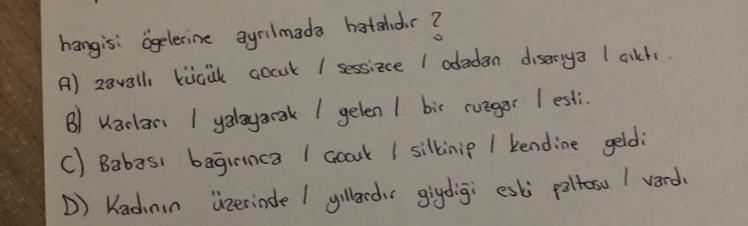 hangisi ögelerine ayrılmada hatalıdır?
A) zavallı küçük çocuk / sessizce / odadan dışarıya / çıktı.
B) Karları / yalayarak / gelen / bir ruzgar / esti.
C) Babası bağırınca / çocuk / silkinip / kendine geldi
D) Kadının üzerinde / yıllardır giydiği eski paltosu / vardı